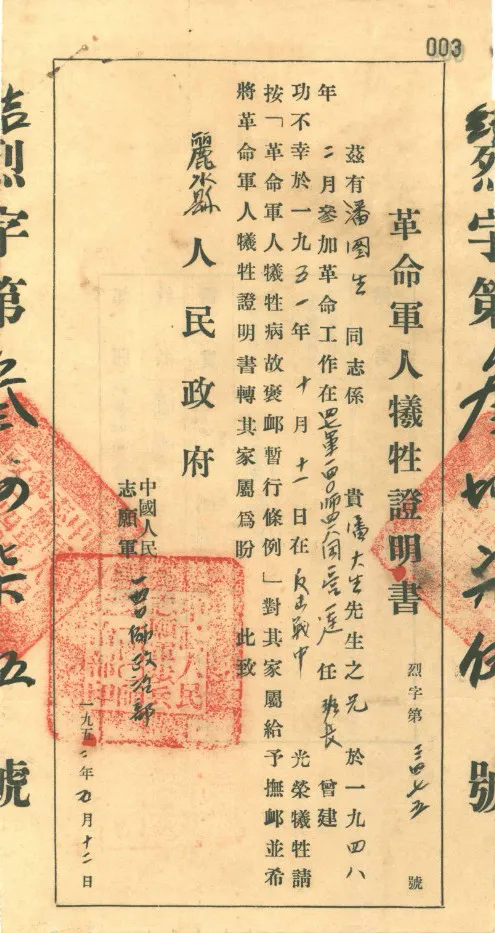 003
烈字第叁
號
革命軍人犧牲證明書
烈字第三四七五號
茲有潘图生同志係 貴潘大生先生之兄於一九四八
年二月參加革命工作在四七軍一四〇師 任班长 曾建
功不幸於一九五一年十月十一日在反击战中 光榮犧牲請
按「革命軍人犧牲病故褒卹暫行條例」對其家屬給予撫卹並希
將革命軍人犧牲證明書轉其家屬爲盼 此致
麗水縣人民政府
中國人民
志願軍
一四〇師政治部
一九五二年九月十二日
烈字第叁四柒五號